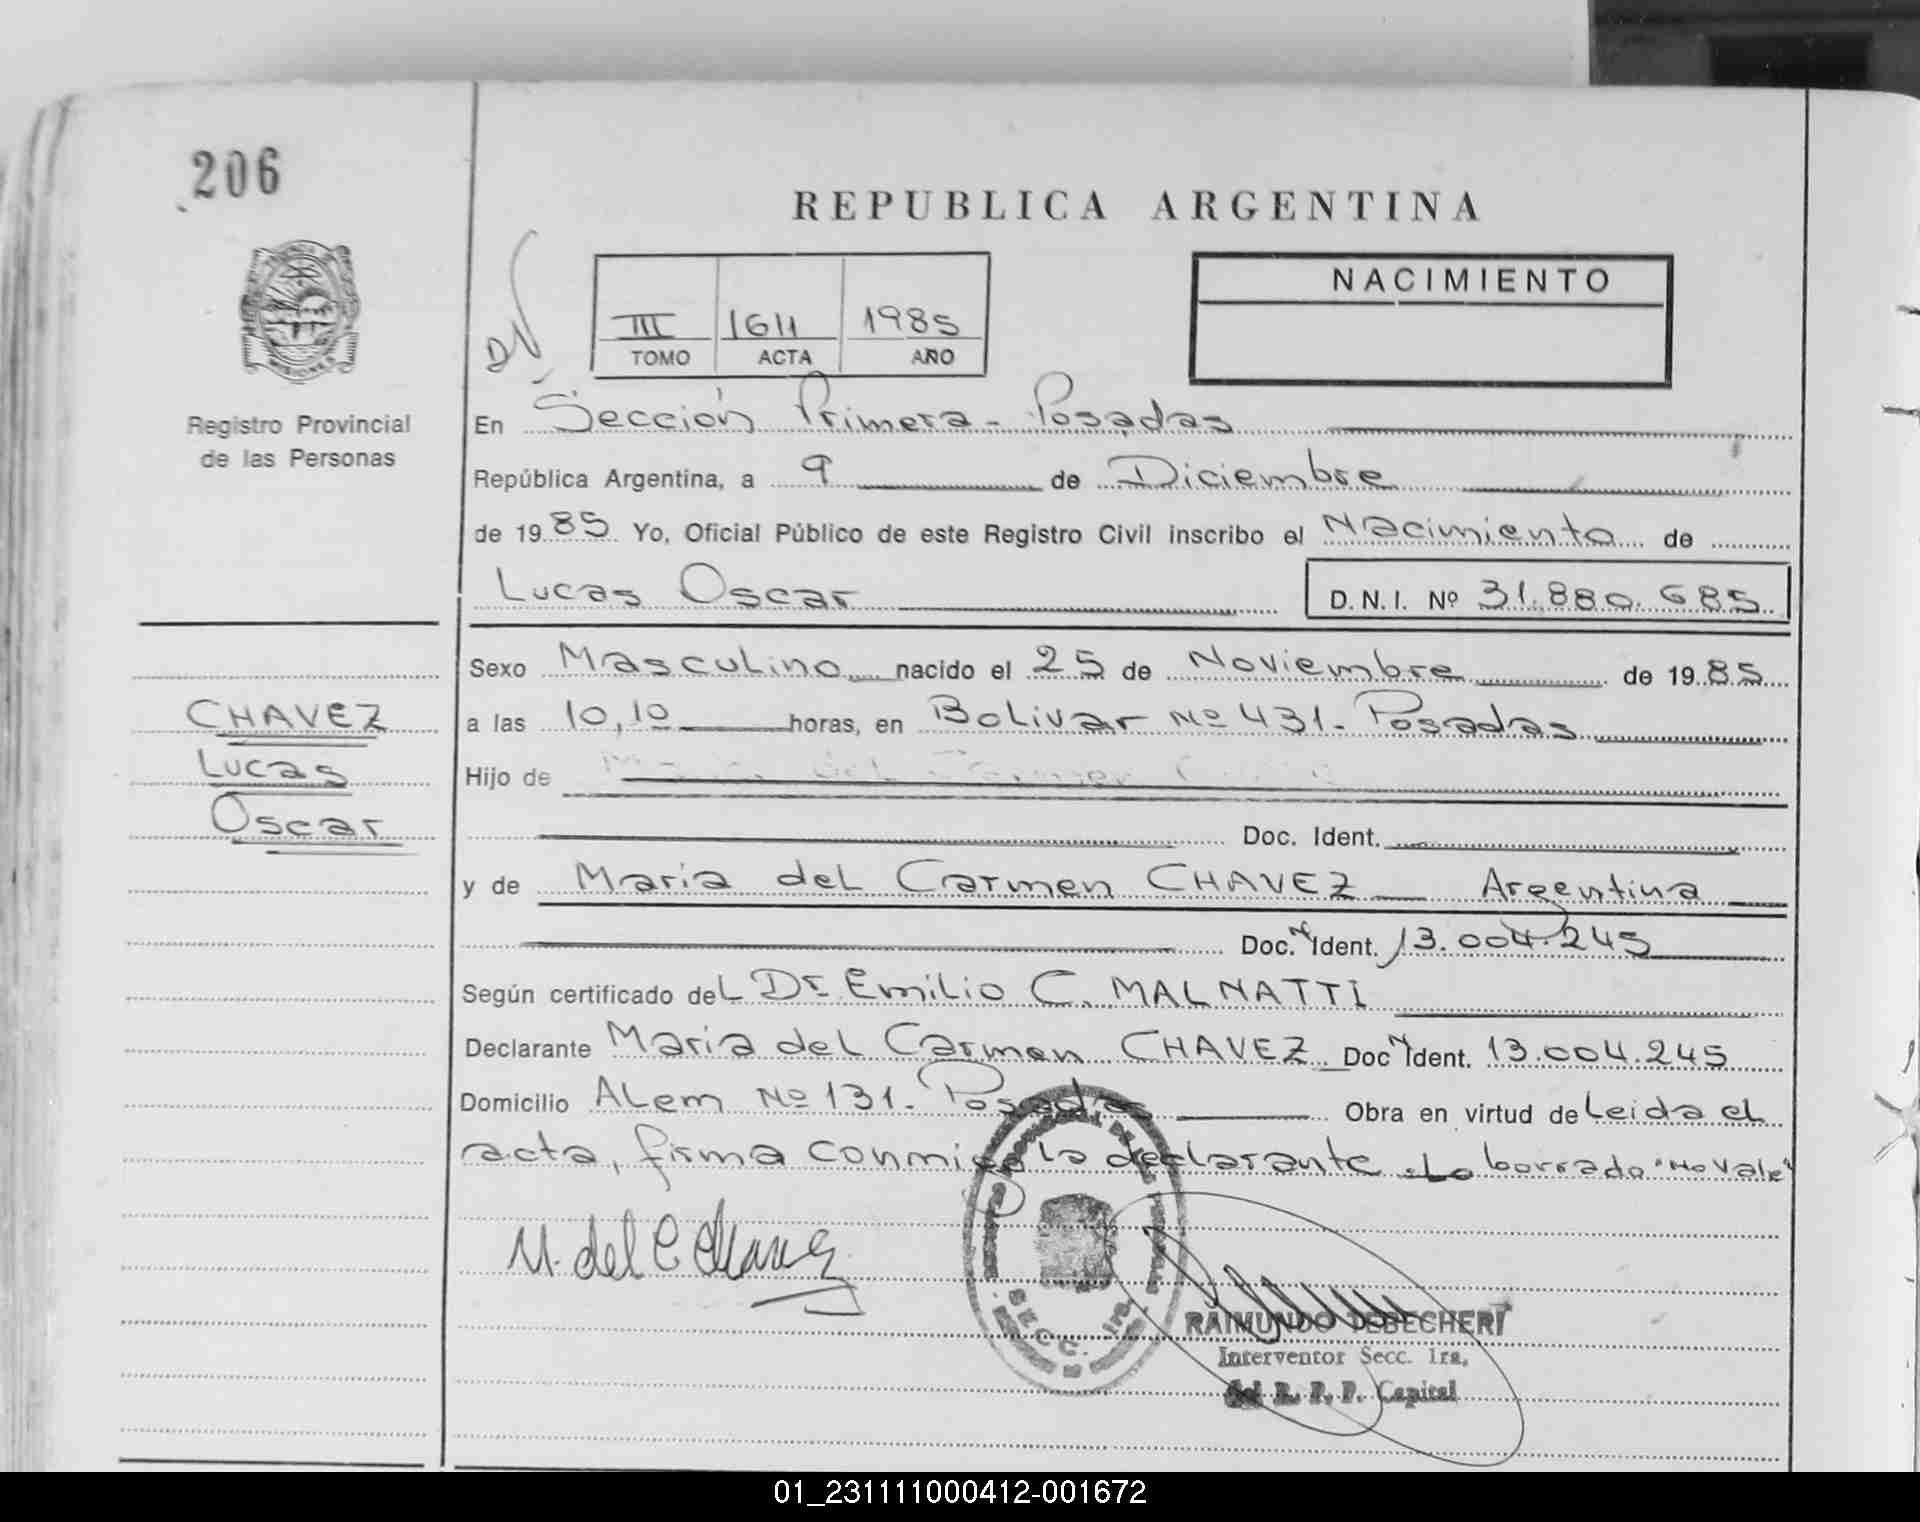 206
REPUBLICA ARGENTINA
NACIMIENTO
III 1611 1985
TOMO ACTA AÑO
MISIONES
Registro Provincial
de las Personas
En Sección Primera - Posadas
República Argentina, a 9 de Diciembre
de 1985 Yo, Oficial Público de este Registro Civil inscribo el Nacimiento de
Lucas Oscar D. N. I. Nº 31.880.685
Sexo Masculino nacido el 25 de Noviembre de 1985
CHAVEZ
Lucas
Oscar
a las 10,10 horas, en Bolivar Nº 431 - Posadas
Hijo de
Doc. Ident.
y de Maria del Carmen CHAVEZ Argentina
Doc. Ident. 13.004.245
Según certificado del Dr. Emilio C. MALNATTI
Declarante Maria del Carmen CHAVEZ Doc Ident. 13.004.245
Domicilio Alem Nº 131 - Posadas Obra en virtud de Leida el
acta, firma conmigo la declarante - Lo borrado "No vale"
M. del C Chavez
SECC. 1ra.
RAIMUNDO TEBECHERI
Interventor Secc. 1ra.
del R. P. P. Capital
01_231111000412-001672